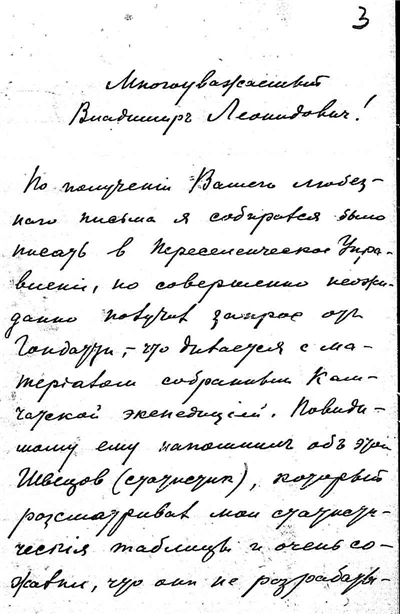 3
Многоуважаемый
Владимиръ Леонидович!
По полученiи Вашего любез-
наго письма я собирался было
писать в Переселенческое Упра-
вленiе, но совершенно неожи-
данно получил запрос отъ
Гондатти, – что делается с ма-
терiалом собранным Кам-
чатской экспедицiей. Повиди-
мому ему напомнилъ объ этом
Швецов (статистик), который
разсматривал мои статисти-
ческiя таблицы и очень со-
жалел, что они не разрабаты-